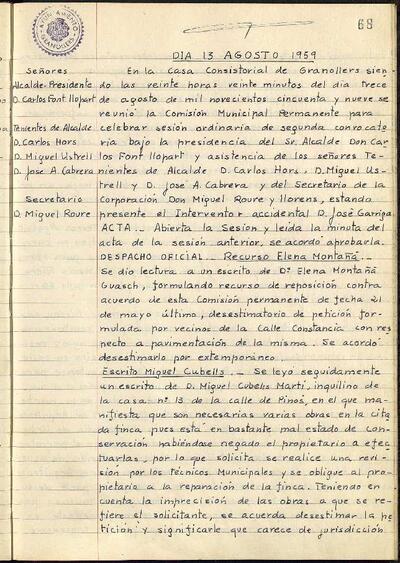 AYUNTAMIENTO
GRANOLLERS
68
DIA 13 AGOSTO 1959
Señores
Alcalde-Presidente
D. Carlos Font llopart
Tenientes de Alcalde
D. Carlos Hors
D. Miguel Ustrell
D. José A. Cabrera
Secretario
D. Miguel Roure
En la Casa Consistorial de Granollers sien-
do las veinte horas veinte minutos del dia trece
de agosto de mil novecientos cincuenta y nueve se
reunió la Comisión Municipal Permanente para
celebrar sesión ordinaria de segunda convocato
ria bajo la presidencia del Sr. Alcalde Don Car
los Font llopart y asistencia de los señores Te-
nientes de Alcalde D. Carlos Hors, D. Miguel Us-
trell y D. José A. Cabrera y del Secretario de la
Corporación Don Miguel Roure y llorens, estando
presente el Interventor accidental D. José Garriga
ACTA.- Abierta la Sesión y leida la minuta del
acta de la sesión anterior, se acordó aprobarla.
DESPACHO OFICIAL.- Recurso Elena Montañá.-
Se dió lectura a un escrito de Dª Elena Montañá
Guasch, formulando recurso de reposición contra
acuerdo de esta Comisión permanente de fecha 21
de mayo último, desestimatorio de petición for-
mulada por vecinos de la Calle Constancia con res
pecto a pavimentación de la misma. Se acordó
desestimarlo por extemporáneo.
Escrito Miguel Cubells.- Se leyó seguidamente
un escrito de D. Miguel Cubells Martí, inquilino de
la casa nº 13 de la calle de Pinós, en el que ma
nifiesta que son necesarias varias obras en la cita
da finca, pues está en bastante mal estado de con
servación habiéndose negado el propietario a efec
tuarlas, por lo que solicita se realice una revi
sión por los Técnicos Municipales y se obligue al pro-
pietario a la reparación de la finca. Teniendo en
cuenta la imprecisión de las obras a que se re-
fiere el solicitante, se acuerda desestimar la pe
tición y significarle que carece de jurisdicción